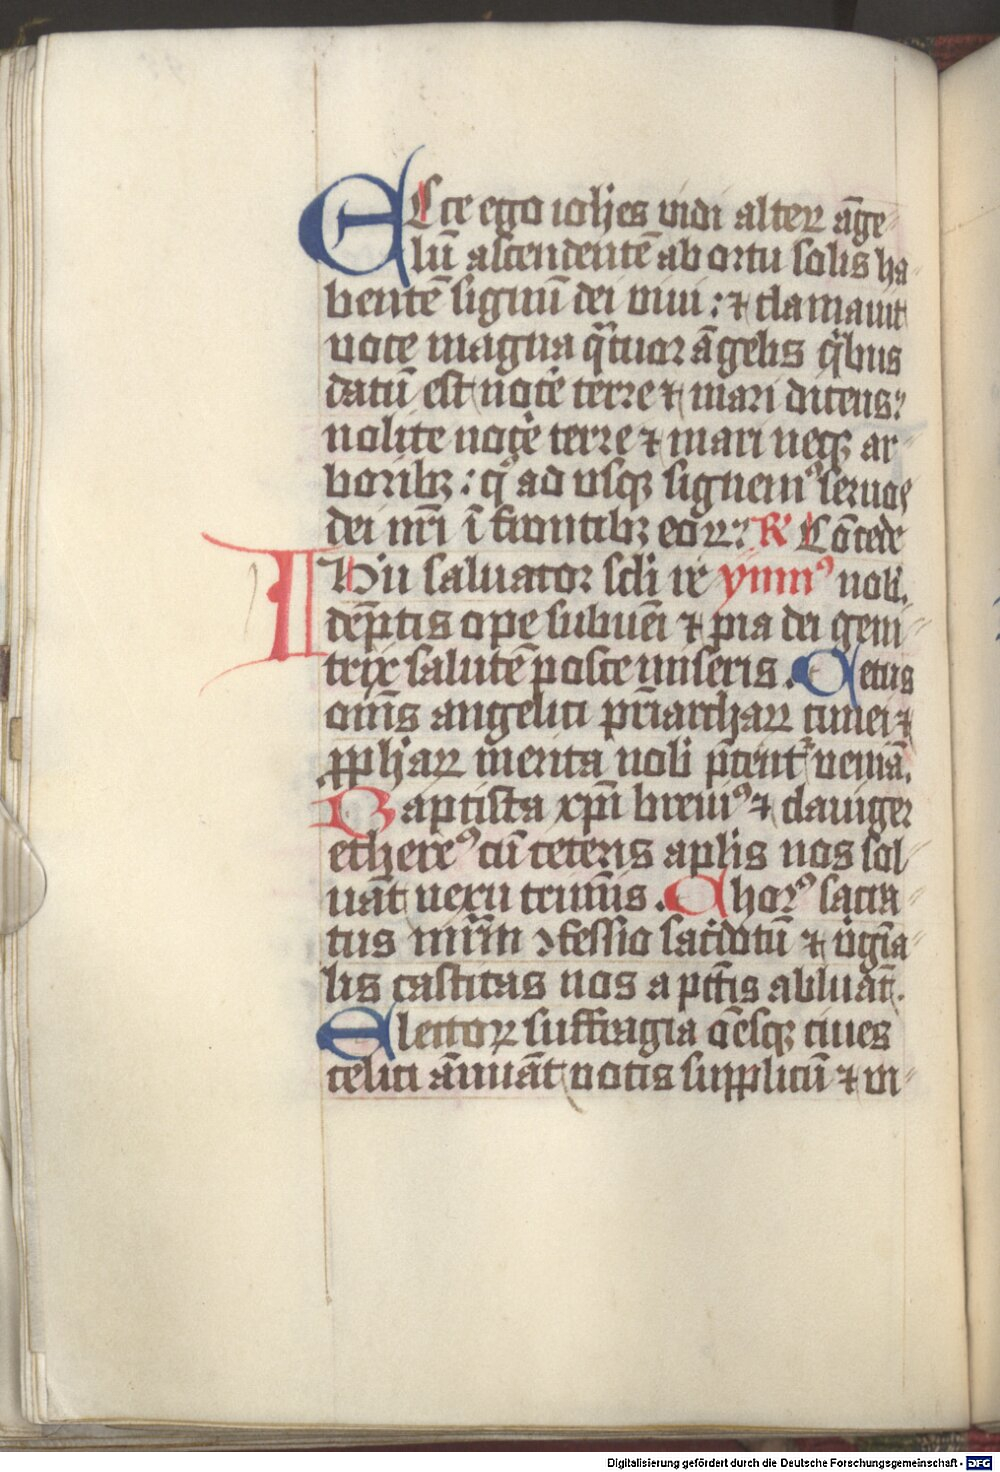 Ecce ego ioh̄es vidi alterꝝ āge-
lū ascendentē ab ortu solis ha-
bentē signū dei viui: ⁊ clamauit
uoce magna qͣtuor āgelis qͥbus
datū est noce͛ terre ⁊ mari dicens:
nolite noce͛ terre ⁊ mari neqꝫ ar-
boribꝫ: qͦ ad vsqꝫ signemꝰ seruos
dei nr̄i ī frontibꝫ eōꝝ: R Cōcede
IHu saluator scl̄i re ymnꝰ nobi.
dēptis ope subuēi ⁊ pia dei geni-
trix salutē posce miseris. Cetus
om̄s angelici pr̄iarchaꝝ cunei ⁊
ꝓphaꝝ merita nobi p̄cent᷑ veniā.
Baptista xp̄i breuiꝰ ⁊ clauiger
ethereꝰ cū ceteris aplis nos sol-
uāt nexu crimīs. Chorꝰ sacra-
tus mr̄m ꝯfessio sacͤdotū ⁊ v̓gīa-
lis castitas nos a pctīs abluāt.
Electoꝝ suffragia oēsqꝫ ciues
celici ānuāt uotis supplicū ⁊ vi-
Digitalisierung gefördert durch die Deutsche Forschungsgemeinschaft - DFG